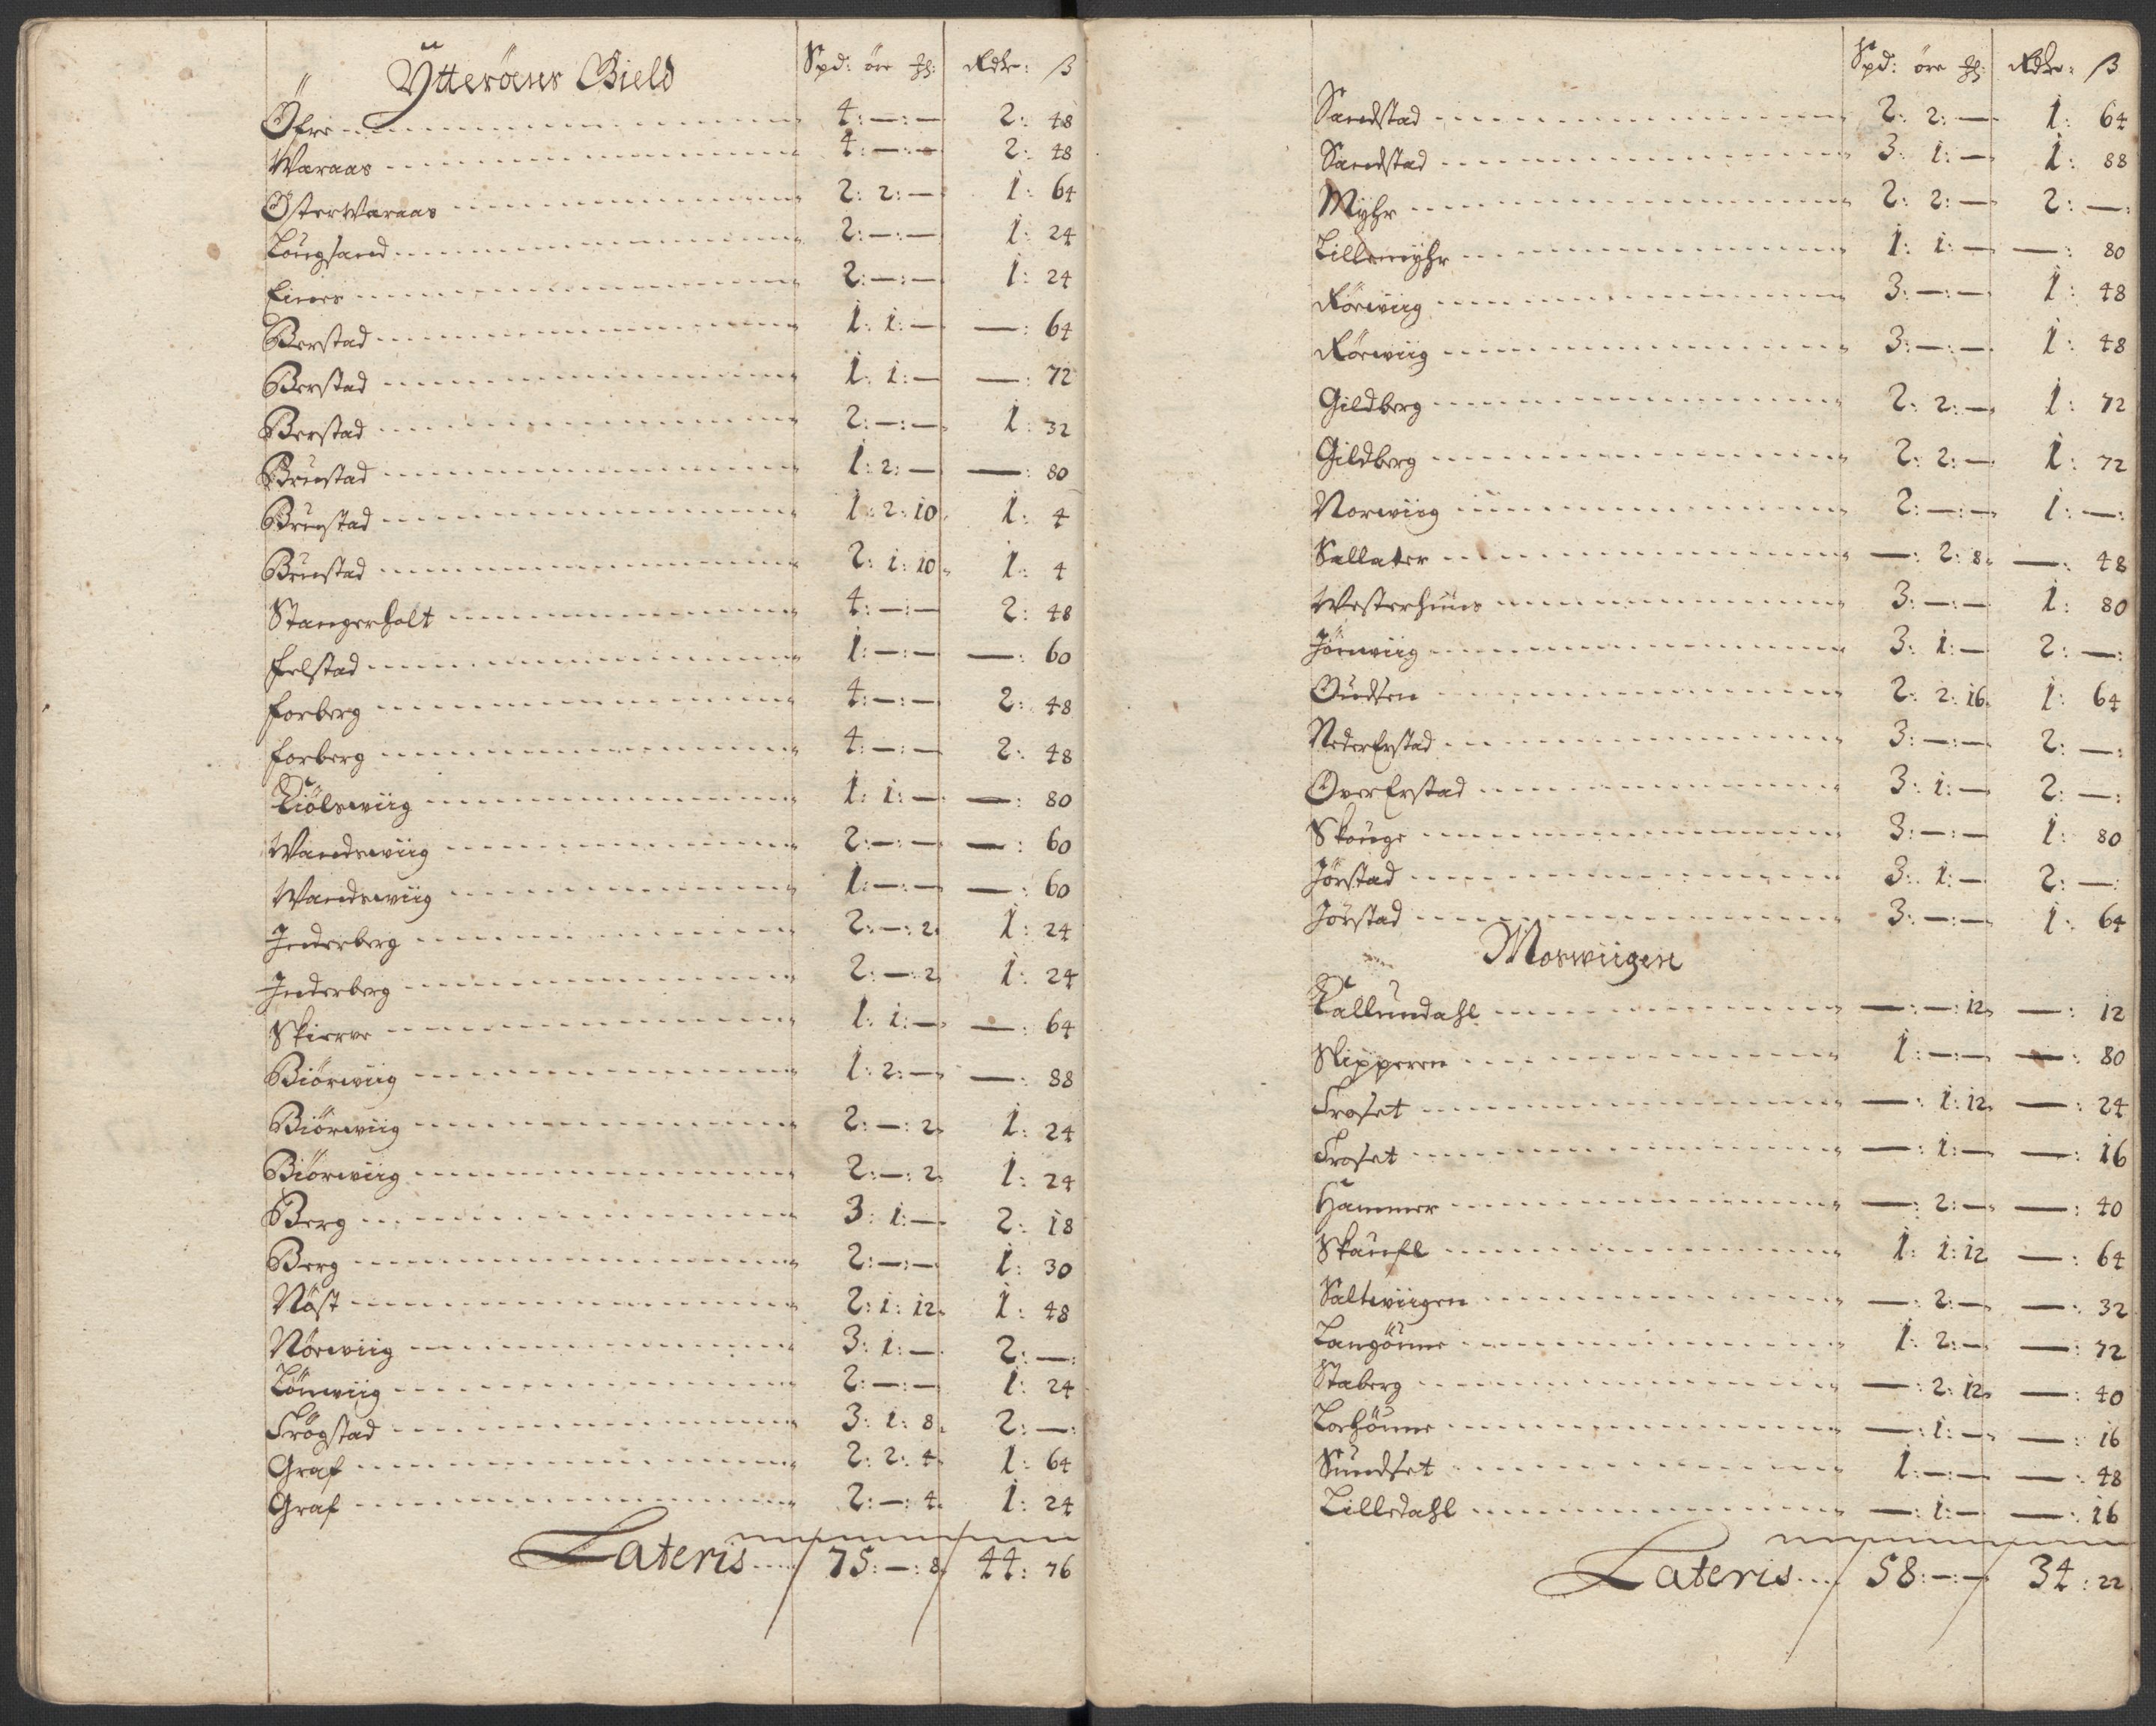 Ÿtterøens Gield
Spd: øre ℔: Rdlr: β
Öfre 4: —: — 2: 48
Waraas 4: —: — 2: 48
Østerwaraas 2: 2: — 1: 64
Lougsand 2: —: — 1: 24
Einers 2: —: — 1: 24
Berstad 1: 1: — —: 64
Berstad 1: 1: — —: 72
Berstad 2: —: — 1: 32
Brustad 1: 2: — —: 80
Brustad 1: 2: 10 1: 4
Brustad 2: 1: 10 1: 4
Stangerholt 4: —: — 2: 48
Felstad 1: —: — —: 60
Forberg 4: —: — 2: 48
Forberg 4: —: — 2: 48
Kiölswiig 1: 1: — —: 80
Wandswiig 2: —: — —: 60
Wandswiig 1: —: — —: 60
Inderberg 2: —: 2 1: 24
Inderberg 2: —: 2 1: 24
Skierve 1: 1: — —: 64
Biörwiig 1: 2: — —: 88
Biörwiig 2: —: 2 1: 24
Biörwiig 2: —: 2 1: 24
Berg 3: 1: — 2: 18
Berg 2: —: — 1: 30
Nöst 2: 1: 12 1: 48
Nörwiig 3: 1: — 2: —:
Lönwiig 2: —: — 1: 24
Frögstad 3: 1: 8 2: —:
Graf 2: 2: 4 1: 64
Graf 2: —: 4 1: 24
Lateris 75: —: 8 44: 76
Spd: øre ℔: Rdlr: β
Sandstad 2: 2: — 1: 64
Sandstad 3: 1: — 1: 88
Myhr 2: 2: — 2: —:
Lillemyhr 1: 1: — —: 80
Rörwiig 3: —: — 1: 48
Rörwiig 3: —: — 1: 48
Gildberg 2: 2: — 1: 72
Gildberg 2: 2: — 1: 72
Norwiig 2: —: — 1: —:
Sallater —: 2: 8 —: 48
Westerhuus 3: —: — 1: 80
Jörnwiig 3: 1: — 2: —:
Oudsen 2: 2: 16 1: 64
NederErstad 3: —: — 2: —:
OverErstad 3: 1: — 2: —:
Skouge 3: —: — 1: 80
Jörstad 3: 1: — 2: —:
Jörstad 3: —: — 1: 64
Moswiigen
Kallundahl —: —: 12 —: 12
Slipperen 1: —: — —: 80
Froset —: 1: 12 —: 24
Froset —: 1: — —: 16
Hammer —: 2: — —: 40
Skaufl 1: 1: 12 —: 64
Saltwiigen —: 2: — —: 32
Langöune 1: 2: — —: 72
Staberg —: 2: 12 —: 40
—: 1: — —: 16
Sundset 1: —: — —: 48
Lilledahl —: 1: — —: 16
Lateris 58: —: — 34: 22